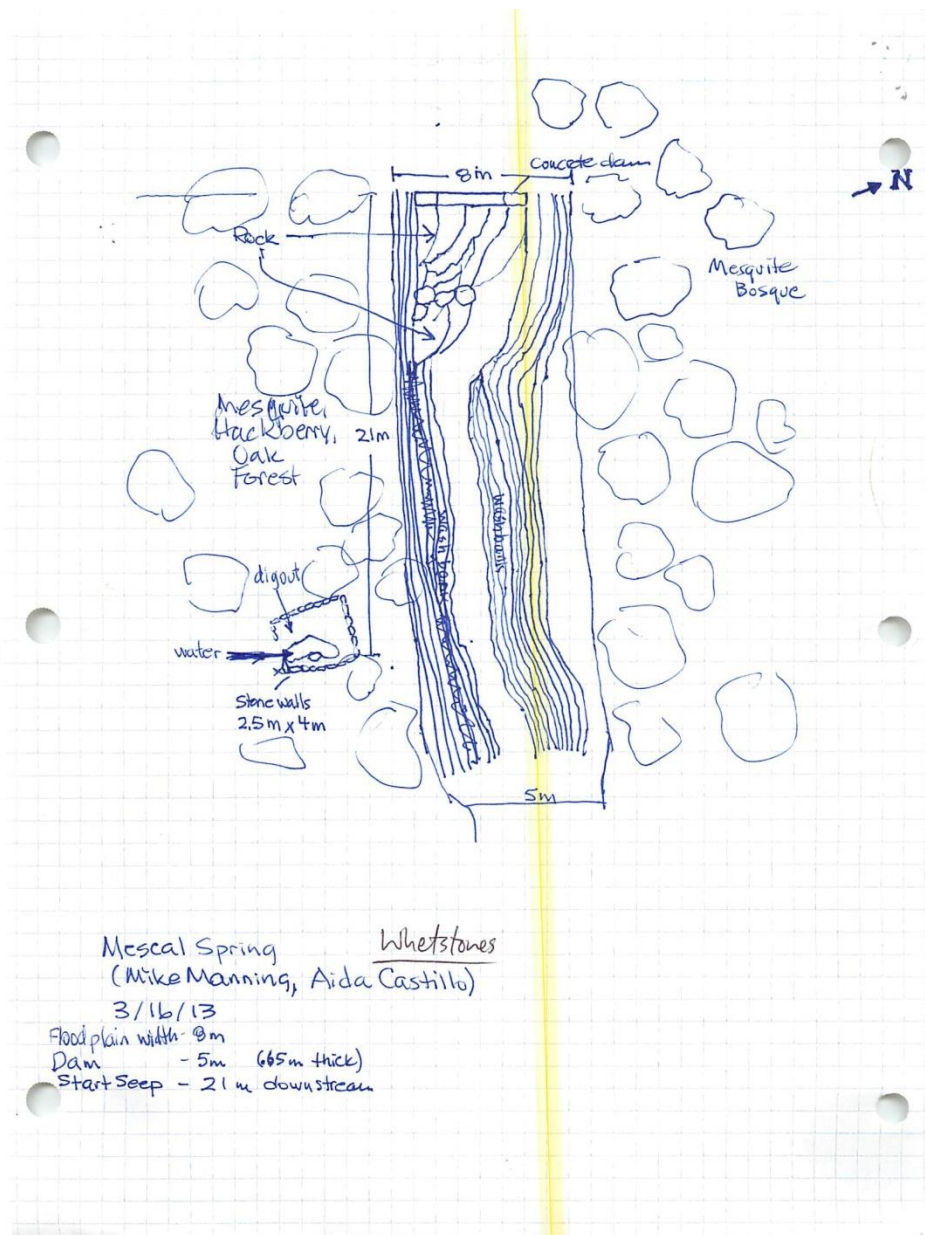 concrete dam
8m
N
Rock
Mesquite
Bosque
Mesquite,
Hackberry,
Oak
Forest
21m
wash banks
wash banks
digout
water
Stone walls
2.5m x 4m
5m
Mescal Spring
Whetstones
(Mike Manning, Aida Castillo)
3/16/13
Floodplain width - 8m
Dam - 5m (.65m thick)
Start Seep - 21 m downstream